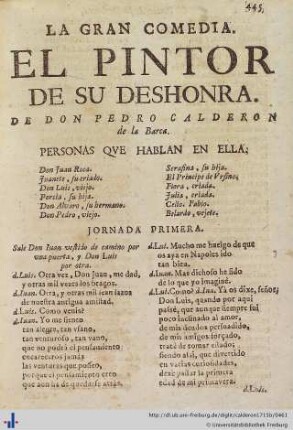 445
LA GRAN COMEDIA.
EL PINTOR
DE SU DESHONRA.
DE DON PEDRO CALDERON
de la Barca.
PERSONAS QVE HABLAN EN ELLA;
Don Juan Roca.
Juanete, su criado.
Don Luis, viejo.
Porcia, su hija.
Don Alvaro, su hermano.
Don Pedro, viejo.
Serafina, su hija.
El Principe de Vrsino;
Flora, criada.
Julia, criada.
Celio. Fabio.
Belardo, vejete.
JORNADA PRIMERA.
Sale Don Juan vestido de camino por
una puerta, y Don Luis
por otra.
d.Luis. Otra vez, Don Juan, me dad,
y otras mil vezes los braços.
d.Juan. Otra, y otras mil sean lazos
de nuestra antigua amistad.
d.Luis. Como venis?
d.Juan. Yo me siento
tan alegre, tan vfano,
tan venturoso, tan vano,
que no podrà el pensamiento
encareceros jamàs
las venturas que posseo,
porque el pensamiento creo
que aun ha de quedarse atràs.
d.Luis. Mucho me huelgo de que
os aya en Napoles ido
tan bien.
d.Juan. Mas dichoso he sido
de lo que yo imaginè.
d.Luis. Como?
d.Juan. Ya os dixe, señor;
Don Luis, quando por aqui
passè, que aunque siempre fui
poco inclinado al amor,
de mis deudos persuadido,
de mis amigos forçado,
tratè de tomar estado;
siendo assi, que divertido
en varias curiosidades,
dexè passar la primera
edad de mi primavera:
d.Luis.
http://dl.ub.uni-freiburg.de/diglit/calderon1715b/0461
© Universitätsbibliothek Freiburg